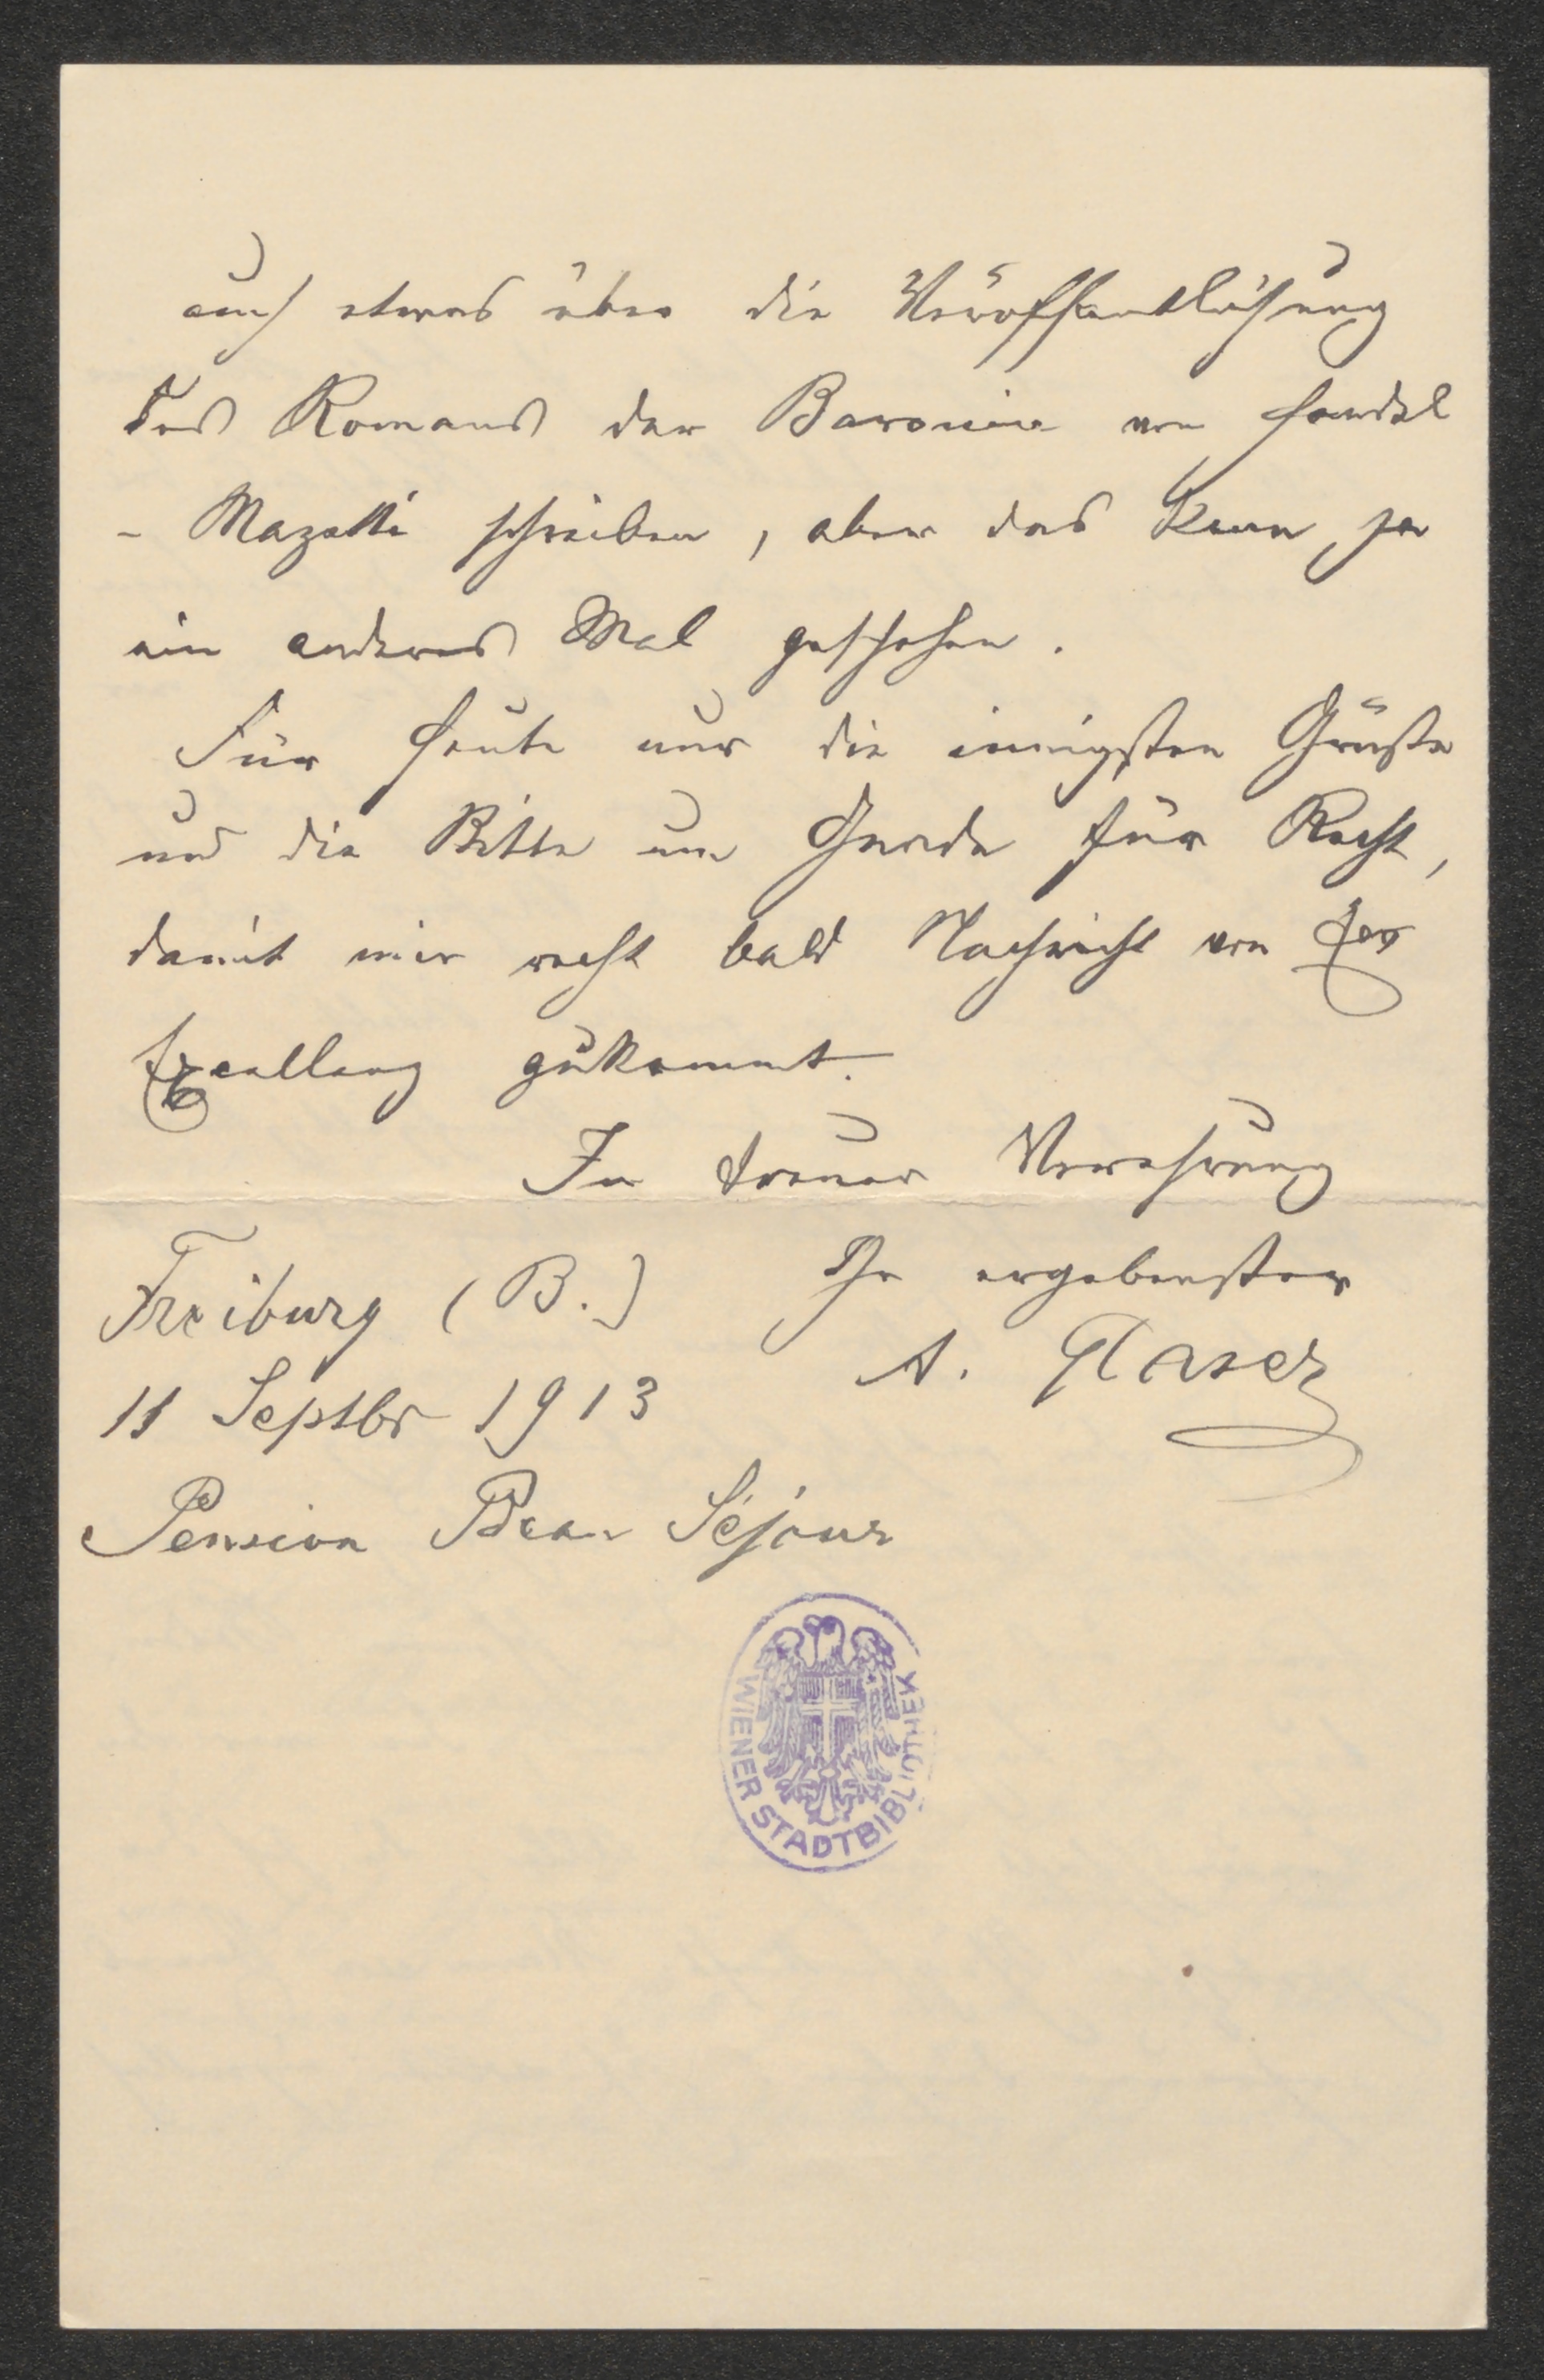 auch etwas über die Veröffentlichung
des Romans der Baronin von Handel
- Mazetti schreiben, aber das kann ja
ein anderes Mal geschehen.
Für heute nur die innigsten Grüße
und die Bitte um Gnade für Recht,
damit mir recht bald Nachricht von Ew
Excellenz zukommt.
In treuer Verehrung
Ihr ergebenster
A. Glaser
Freiburg (B.)
11 Septbr 1913
Pension Beau Séjour
WIENER STADTBIBLIOTHEK